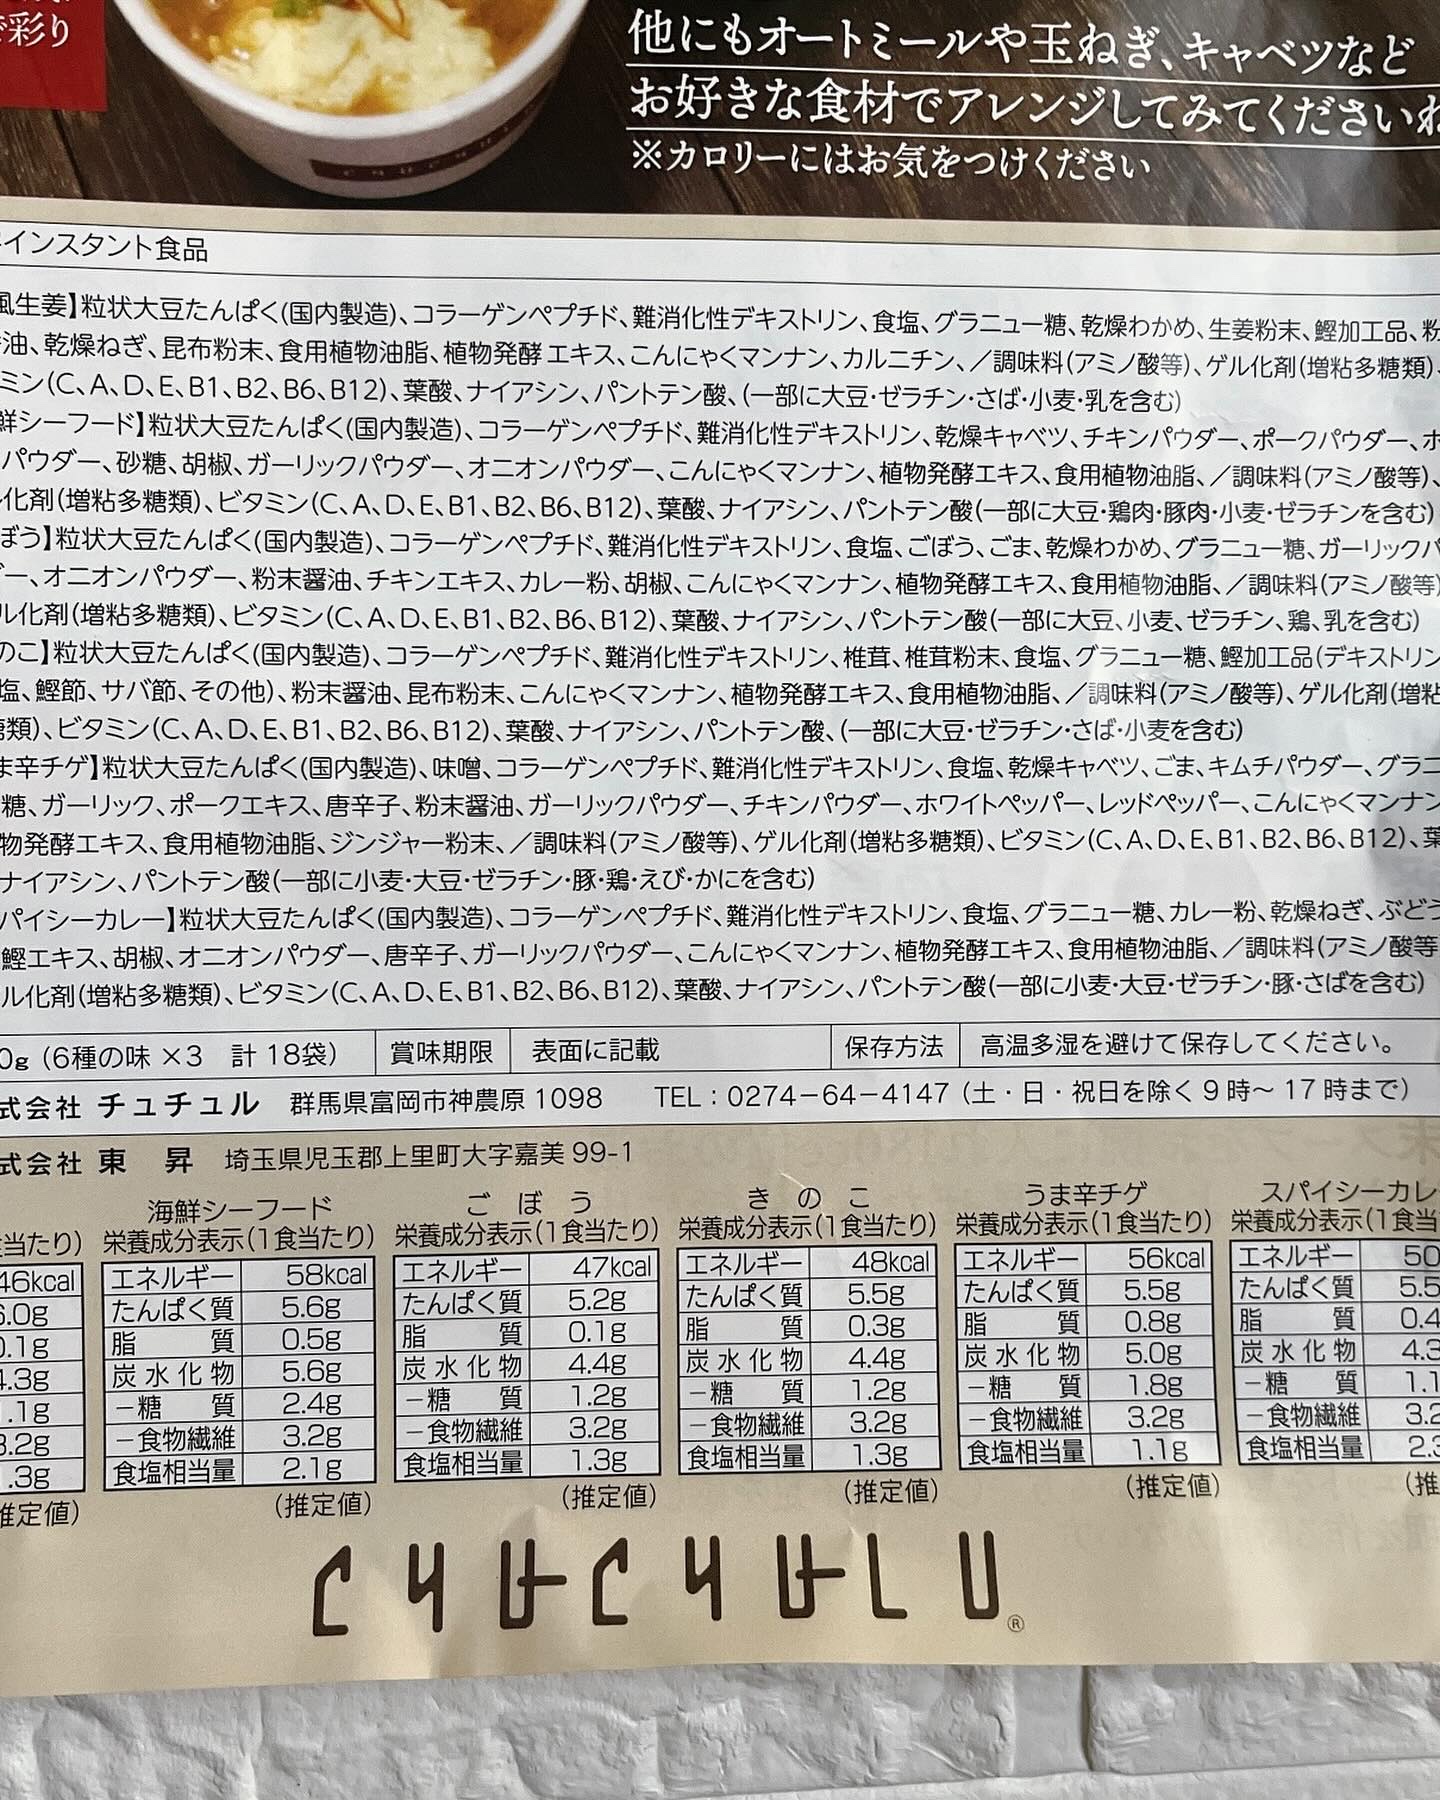 で彩り
他にもオートミールや玉ねぎ、キャベツなど
お好きな食材でアレンジしてみてくださいね
※カロリーにはお気をつけください
インスタント食品
風生姜】粒状大豆たんぱく(国内製造)、コラーゲンペプチド、難消化性デキストリン、食塩、グラニュー糖、乾燥わかめ、生姜粉末、鰹加工品、粉
油、乾燥ねぎ、昆布粉末、食用植物油脂、植物発酵エキス、こんにゃくマンナン、カルニチン、／調味料(アミノ酸等)、ゲル化剤(増粘多糖類)、
ミン(C、A、D、E、B1、B2、B6、B12)、葉酸、ナイアシン、パントテン酸、(一部に大豆・ゼラチン・さば・小麦・乳を含む)
鮮シーフード】粒状大豆たんぱく(国内製造)、コラーゲンペプチド、難消化性デキストリン、乾燥キャベツ、チキンパウダー、ポークパウダー、ホ
パウダー、砂糖、胡椒、ガーリックパウダー、オニオンパウダー、こんにゃくマンナン、植物発酵エキス、食用植物油脂、／調味料(アミノ酸等)、
ル化剤(増粘多糖類)、ビタミン(C、A、D、E、B1、B2、B6、B12)、葉酸、ナイアシン、パントテン酸(一部に大豆・鶏肉・豚肉・小麦・ゼラチンを含む)
ぼう】粒状大豆たんぱく(国内製造)、コラーゲンペプチド、難消化性デキストリン、食塩、ごぼう、ごま、乾燥わかめ、グラニュー糖、ガーリックパ
ー、オニオンパウダー、粉末醤油、チキンエキス、カレー粉、胡椒、こんにゃくマンナン、植物発酵エキス、食用植物油脂、／調味料(アミノ酸等)
ル化剤(増粘多糖類)、ビタミン(C、A、D、E、B1、B2、B6、B12)、葉酸、ナイアシン、パントテン酸(一部に大豆、小麦、ゼラチン、鶏、乳を含む)
のこ】粒状大豆たんぱく(国内製造)、コラーゲンペプチド、難消化性デキストリン、椎茸、椎茸粉末、食塩、グラニュー糖、鰹加工品(デキストリン
塩、鰹節、サバ節、その他)、粉末醤油、昆布粉末、こんにゃくマンナン、植物発酵エキス、食用植物油脂、／調味料(アミノ酸等)、ゲル化剤(増粘
糖類)、ビタミン(C、A、D、E、B1、B2、B6、B12)、葉酸、ナイアシン、パントテン酸、(一部に大豆・ゼラチン・さば・小麦を含む)
ま辛チゲ】粒状大豆たんぱく(国内製造)、味噌、コラーゲンペプチド、難消化性デキストリン、食塩、乾燥キャベツ、ごま、キムチパウダー、グラニ
糖、ガーリック、ポークエキス、唐辛子、粉末醤油、ガーリックパウダー、チキンパウダー、ホワイトペッパー、レッドペッパー、こんにゃくマンナン
物発酵エキス、食用植物油脂、ジンジャー粉末、／調味料(アミノ酸等)、ゲル化剤(増粘多糖類)、ビタミン(C、A、D、E、B1、B2、B6、B12)、葉
ナイアシン、パントテン酸(一部に小麦・大豆・ゼラチン・豚・鶏・えび・かにを含む)
パイシーカレー】粒状大豆たんぱく(国内製造)、コラーゲンペプチド、難消化性デキストリン、食塩、グラニュー糖、カレー粉、乾燥ねぎ、ぶどう
鰹エキス、胡椒、オニオンパウダー、唐辛子、ガーリックパウダー、こんにゃくマンナン、植物発酵エキス、食用植物油脂、／調味料(アミノ酸等
ル化剤(増粘多糖類)、ビタミン(C、A、D、E、B1、B2、B6、B12)、葉酸、ナイアシン、パントテン酸(一部に小麦・大豆・ゼラチン・豚・さばを含む)
0g (6種の味×3 計18袋) 賞味期限 表面に記載 保存方法 高温多湿を避けて保存してください。
式会社 チュチュル 群馬県富岡市神農原1098 TEL：0274−64−4147 (土・日・祝日を除く9時〜17時まで)
式会社 東 昇 埼玉県児玉郡上里町大字嘉美99-1
海鮮シーフード ごぼう きのこ うま辛チゲ スパイシーカレ
食当たり) 栄養成分表示(1食当たり) 栄養成分表示(1食当たり) 栄養成分表示(1食当たり) 栄養成分表示(1食当たり) 栄養成分表示(1食当
46kcal エネルギー 58kcal エネルギー 47kcal エネルギー 48kcal エネルギー 56kcal エネルギー 50
6.0g たんぱく質 5.6g たんぱく質 5.2g たんぱく質 5.5g たんぱく質 5.5g たんぱく質 5.5
0.1g 脂質 0.5g 脂質 0.1g 脂質 0.3g 脂質 0.8g 脂質 0.4
4.3g 炭水化物 5.6g 炭水化物 4.4g 炭水化物 4.4g 炭水化物 5.0g 炭水化物 4.3
.1g −糖質 2.4g −糖質 1.2g −糖質 1.2g −糖質 1.8g −糖質 1.1
3.2g −食物繊維 3.2g −食物繊維 3.2g −食物繊維 3.2g −食物繊維 3.2g −食物繊維 3.2
.3g 食塩相当量 2.1g 食塩相当量 1.3g 食塩相当量 1.3g 食塩相当量 1.1g 食塩相当量 2.3
推定値) (推定値) (推定値) (推定値) (推定値) (推
CHUCHULU®